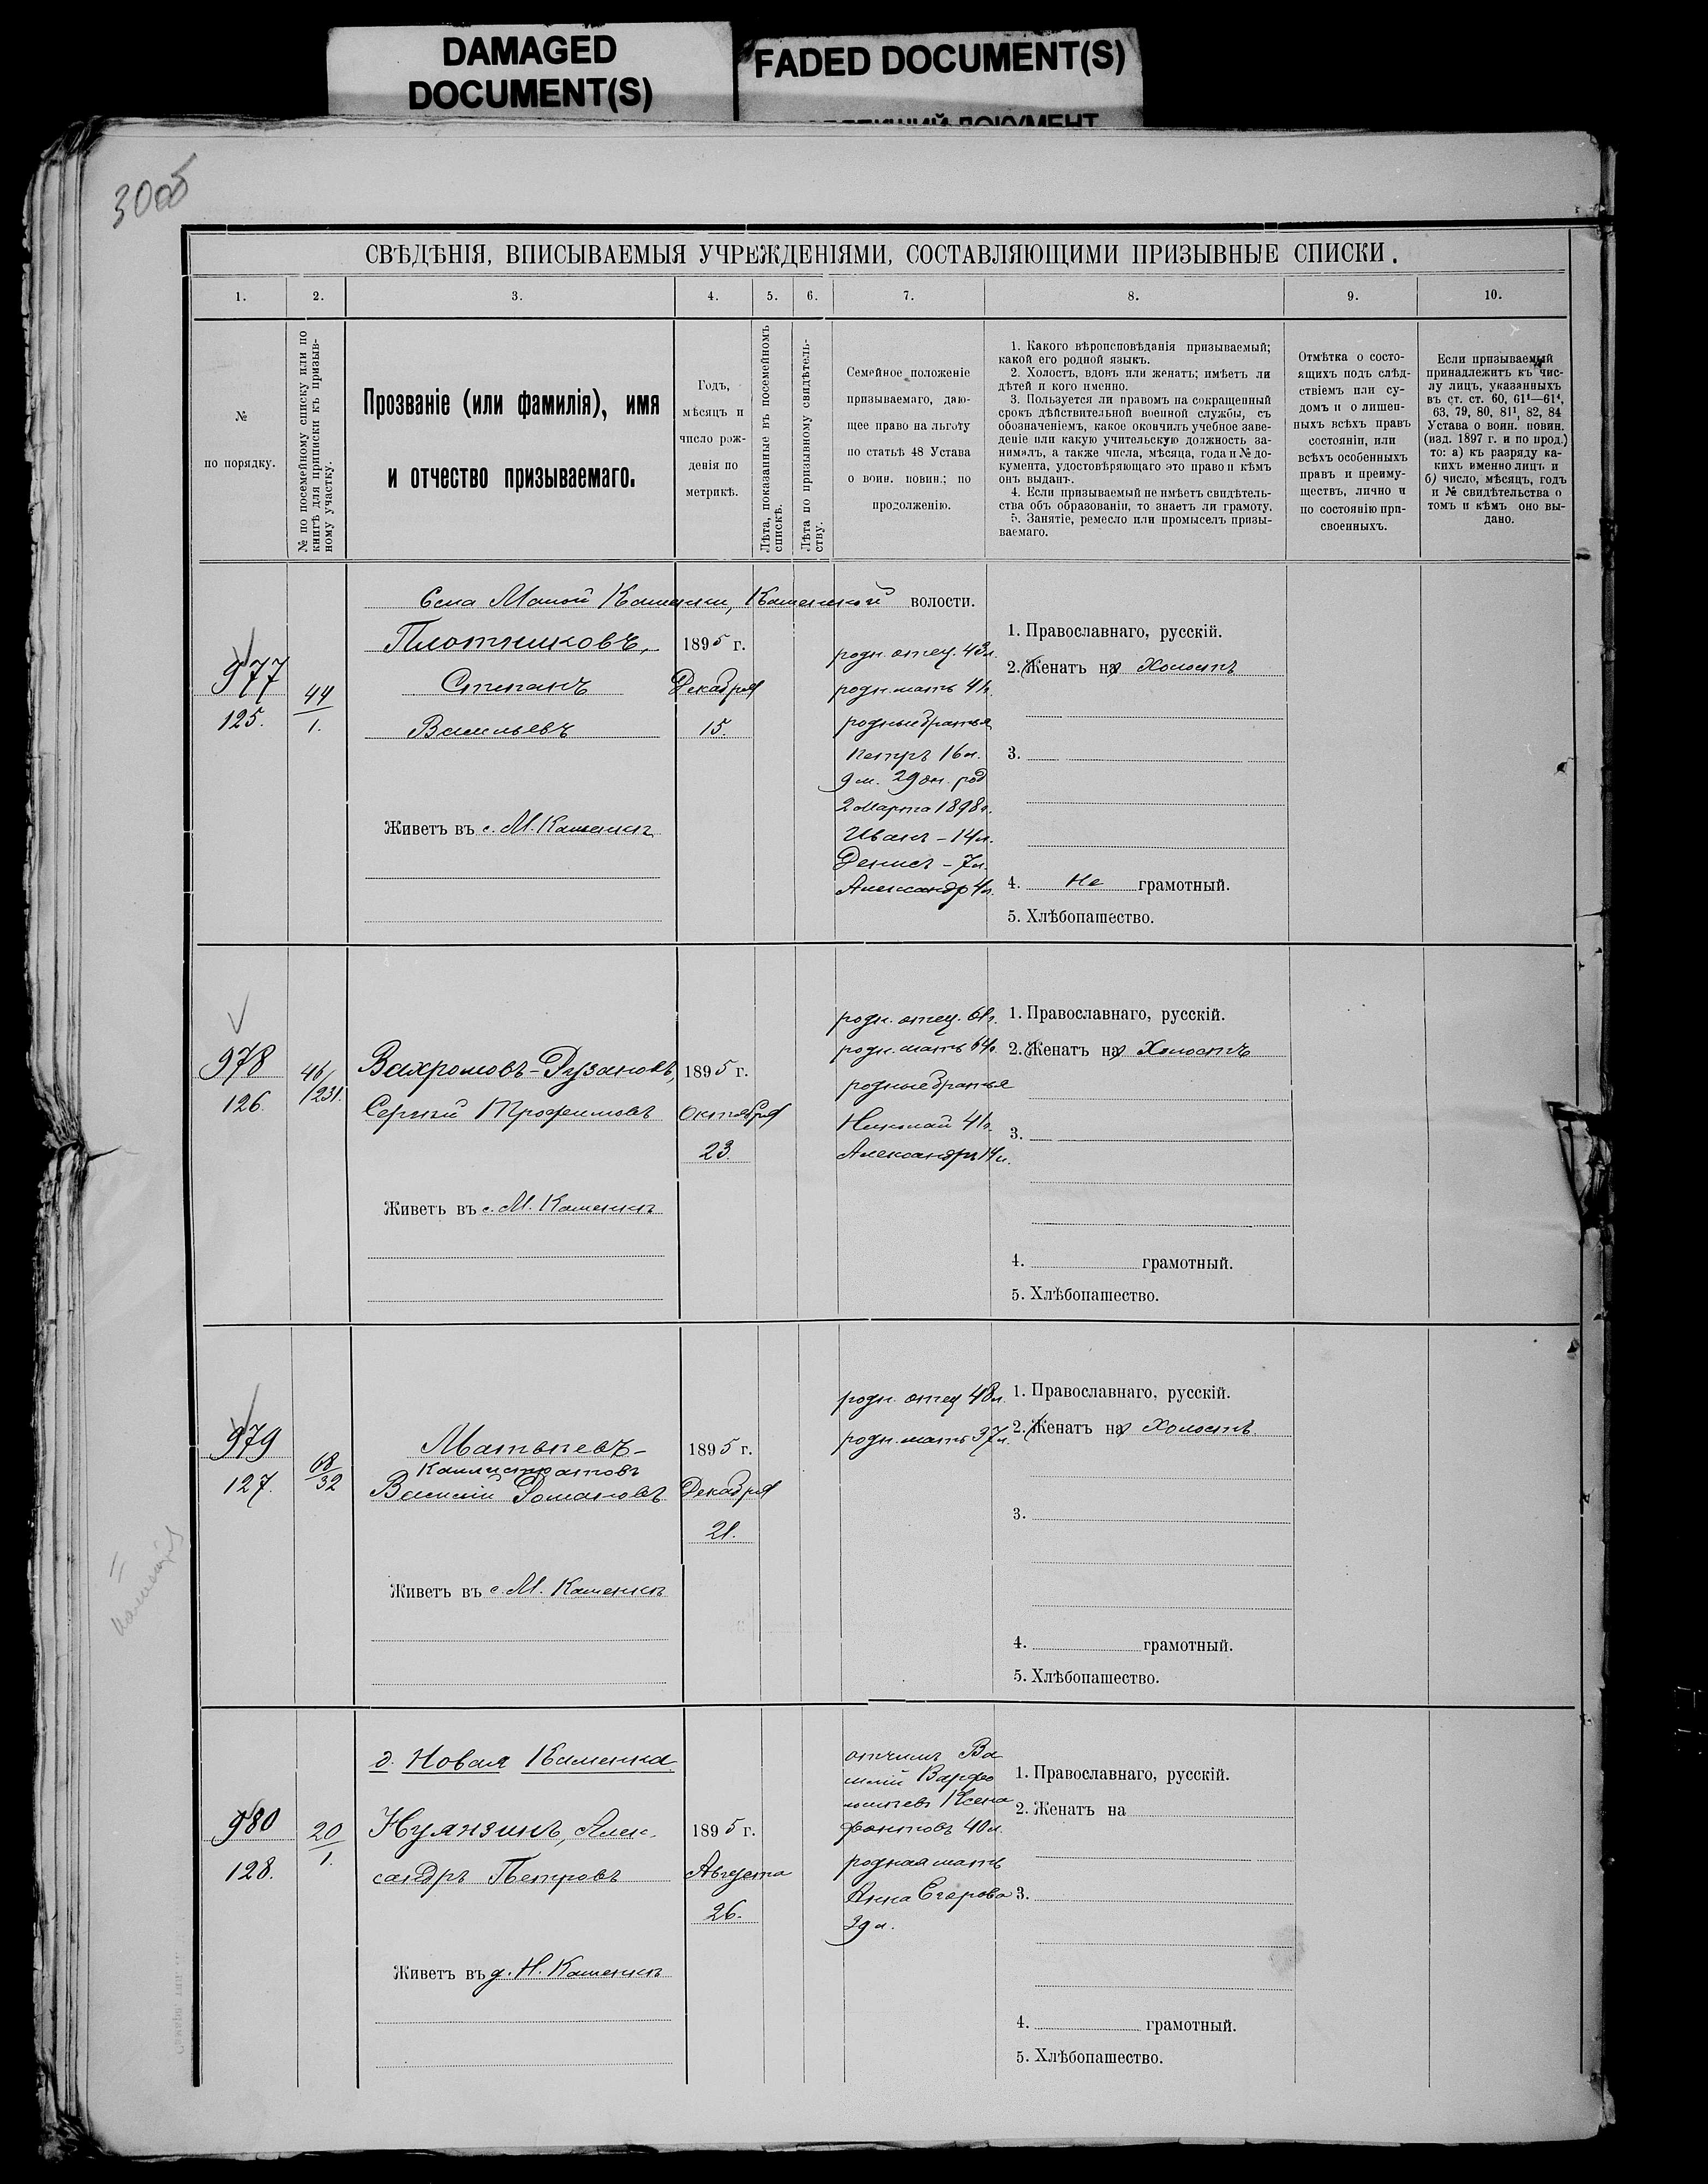 DAMAGED
DOCUMENT(S)
FADED DOCUMENT(S)
300б
СВѢДѢНІЯ, ВПИСЫВАЕМЫЯ УЧРЕЖДЕНІЯМИ, СОСТАВЛЯЮЩИМИ ПРИЗЫВНЫЕ СПИСКИ.
1. 2. 3. 4. 5. 6. 7. 8. 9. 10.
№
по порядку.
№ по посемейному списку или по
книгѣ для приписки къ призыв-
ному участку.
Прозваніе (или фамилія), имя
и отчество призываемаго.
Годъ,
мѣсяцъ и
число рож-
денія по
метрикѣ.
Лѣта, показанные въ посемейномъ
спискѣ.
Лѣта по призывному свидѣтель-
ству.
Семейное положеніе
призываемаго, даю-
щее право на льготу
по статьѣ 48 Устава
о воин. повин.; по
продолженію.
1. Какого вѣроисповѣданія призываемый;
какой его родной языкъ.
2. Холостъ, вдовъ или женатъ; имѣетъ ли
дѣтей и кого именно.
3. Пользуется ли правомъ на сокращенный
срокъ дѣйствительной военной службы, съ
обозначеніемъ, какое окончилъ учебное заве-
деніе или какую учительскую должность за-
нималъ, а также числа, мѣсяца, года и № до-
кумента, удостовѣряющаго это право и кѣмъ
онъ выданъ.
4. Если призываемый не имѣетъ свидѣтель-
ства объ образованіи, то знаетъ ли грамоту.
5. Занятіе, ремесло или промыселъ призы-
ваемаго.
Отмѣтка о состо-
ящихъ подъ слѣд-
ствіемъ или су-
домъ и о лишен-
ныхъ всѣхъ правъ
состоянія, или
всѣхъ особенныхъ
правъ и преиму-
ществъ, лично и
по состоянію при-
своенныхъ.
Если призываемый
принадлежитъ къ чис-
лу лицъ, указанныхъ
въ ст. ст. 60, 61¹—61⁴,
63, 79, 80, 81¹, 82, 84
Устава о воин. повин.
(изд. 1897 г. и по прод.)
то: а) къ разряду ка-
кихъ именно лицъ и
б) число, мѣсяцъ, годъ
и № свидѣтельства о
томъ и кѣмъ оно вы-
дано.
Села Малой Каменки, Каменской волости.
977
125.
44
1.
Плотниковъ,
Степанъ
Васильевъ
Живетъ въ с. М. Каменкѣ
1895 г.
Декабря
15.
родн. отец. 43л.
родн. мать 41г.
родные братья
Петръ 16л.
9м. 29дн. род
2 Марта 1898г.
Иванъ - 14л.
Денисъ - 7л.
Александр 4г.
1. Православнаго, русскій.
2. Женатъ на Холостъ
3.
4. Не грамотный.
5. Хлѣбопашество.
978
126.
46/
/231.
Вахромовъ-Рузановъ,
Сергѣй Трофимовъ
Живетъ въ с. М. Каменкѣ
1895 г.
Октября
23.
родн. отец. 61г.
родн. мать 64г.
родные братья
Николай 41г.
Александръ 14л.
1. Православнаго, русскій.
2. Женатъ на Холостъ
3.
4. грамотный.
5. Хлѣбопашество.
979
127.
68
32
Матвѣевъ-
Каллистратовъ
Василій Романовъ
Живетъ въ с. М. Каменкѣ
1895 г.
Декабря
21.
родн. отец 48л.
родн. мать 37л.
1. Православнаго, русскій.
2. Женатъ на Холостъ
3.
4. грамотный.
5. Хлѣбопашество.
д. Новая Каменка
980
128.
20
1.
Нуянзинъ, Алек-
сандръ Петровъ
Живетъ въ д. Н. Каменкѣ
1895 г.
Августа
26.
отчимъ Ва
силій Варфо
ломѣевъ Ксено
фонтовъ 40л.
родная мать
Анна Егорова
39л.
1. Православнаго, русскій.
2. Женатъ на
3.
4. грамотный.
5. Хлѣбопашество.